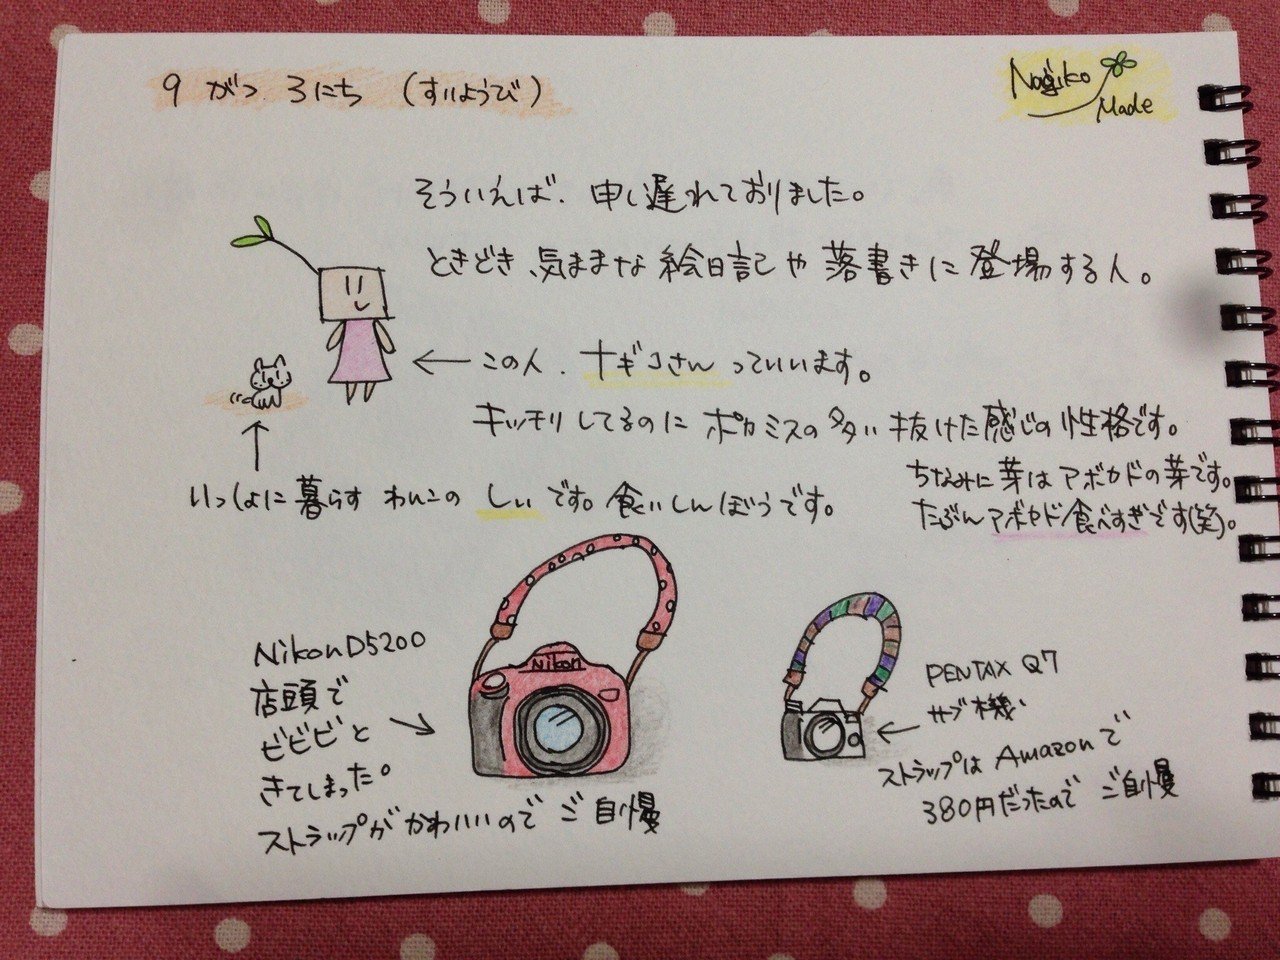 9がつ 3にち (すいようび)
Nagiko Made
そういえば、申し遅れておりました。
ときどき、気ままな絵日記や落書きに登場する人。
← この人、ナギコさんっていいます。
キッチリしてるのにポカミスの多い抜けた感じの性格です。
ちなみに芽はアボカドの芽です。
たぶんアボカド食べすぎです(笑)。
いっしょに暮らすわんこのしぃです。食いしんぼうです。
NikonD5200
店頭で
ビビビと
きてしまった。
ストラップがかわいいのでご自慢
Nikon
PENTAX Q7
サブ機い
ストラップはAmazonで
380円だったのでご自慢